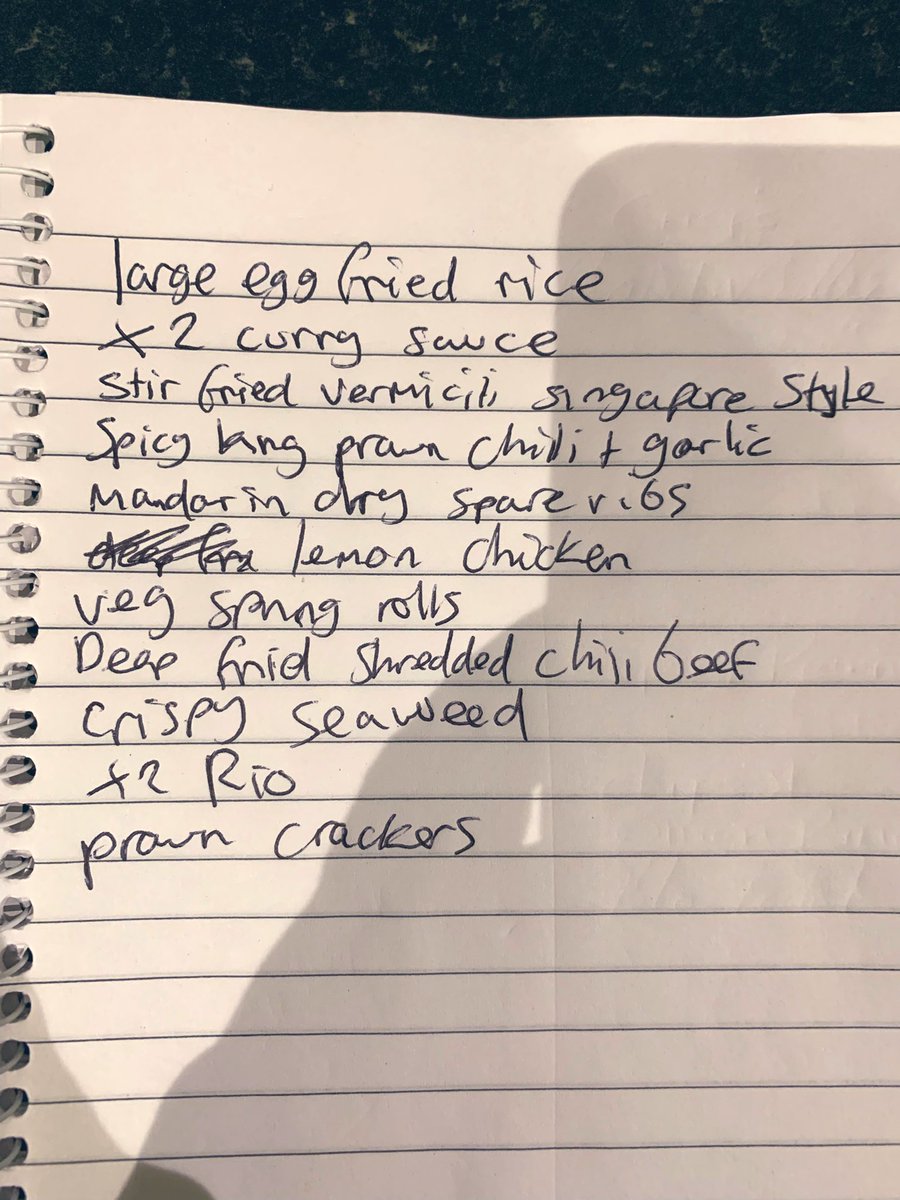 large egg fried rice
x2 curry sauce
Stir fried vermicili singapore Style
Spicy king prawn chilli + garlic
Mandarin dry spare ribs
lemon chicken
veg spring rolls
Deap frid shredded chili beef
crispy seaweed
x2 Rio
prawn crackers